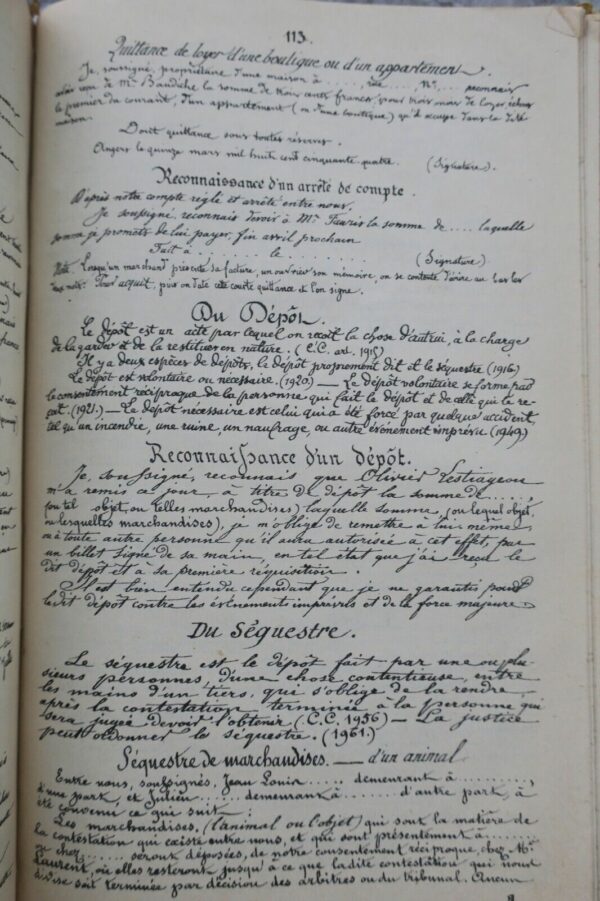 113.
Quittance de loyer d'une boutique ou d'un appartement.
Je, soussigné, propriétaire d'une maison à ....., rue ....., N°..., reconnais
avoir reçu de Mr Baudiche la somme de trois cents francs, pour trois mois de loyer échus
le premier du courant, d'un appartement (ou d'une boutique) qu'il occupe dans la dite
maison.
Dont quittance sous toutes réserves.
Angers le quinze mars mil huit cent cinquante quatre. (Signature).
Reconnaissance d'un arrêté de compte.
D'après notre compte réglé et arrêté entre nous,
Je soussigné, reconnais devoir à Mr la somme de .... laquelle
somme je promets de lui payer, fin avril prochain
Fait à ........ le ........... (Signature)
Note. Lorsqu'un marchand présente sa facture, un ouvrier son mémoire, on se contente d'écrire au bas les
mots: Pour acquit, puis on date cette courte quittance et l'on signe.
Du Dépôt.
Le dépôt est un acte par lequel on reçoit la chose d'autrui, à la charge
de la garder et de la restituer en nature. (C.C. art. 1915)
Il y a deux espèces de dépôts, le dépôt proprement dit et le séquestre (1916)
Le dépôt est volontaire ou nécessaire. (1920) — Le dépôt volontaire se forme par
le consentement réciproque de la personne qui fait le dépôt et de celle qui le re-
çoit. (1921.) — Le dépôt nécessaire est celui qui a été forcé par quelque accident,
tel qu'un incendie, une ruine, un naufrage ou autre événement imprévu (1949)
Reconnaissance d'un dépôt.
Je, soussigné, reconnais que Olivier Lestiageon
m'a remis ce jour, à titre de dépôt la somme de ......,
(ou tel objet, ou telles marchandises) laquelle somme, (ou lequel objet,
ou lesquelles marchandises), je m'oblige de remettre à lui même,
ou à toute autre personne qu'il aura autorisée à cet effet, par
un billet signé de sa main, en tel état que j'ai reçu le
dit dépôt et à sa première réquisition.
Il est bien entendu cependant que je ne garantis point
le dit dépôt contre les événements imprévus et de la force majeure
Du Séquestre.
Le séquestre est le dépôt fait par une ou plu-
sieurs personnes, d'une chose contentieuse, entre
les mains d'un tiers, qui s'oblige de la rendre,
après la contestation terminée à la personne qui
sera jugée devoir l'obtenir (C.C. 1956) — La justice
peut ordonner le séquestre. (1961.)
Séquestre de marchandises. — d'un animal
Entre nous, soussignés, Jean Louis ..... demeurant à .........,
d'une part, et Julien ..... demeurant à ........ d'autre part, a
été convenu ce qui suit:
Les marchandises, (l'animal ou l'objet) qui sont la matière de
la contestation qui existe entre nous, et qui sont présentement à .......
chez ..... seront déposées, de notre consentement réciproque, chez Mr
Laurent, où elles resteront jusqu'à ce que la dite contestation qui nous
divise soit terminée par décision des arbitres ou du tribunal. Aucun